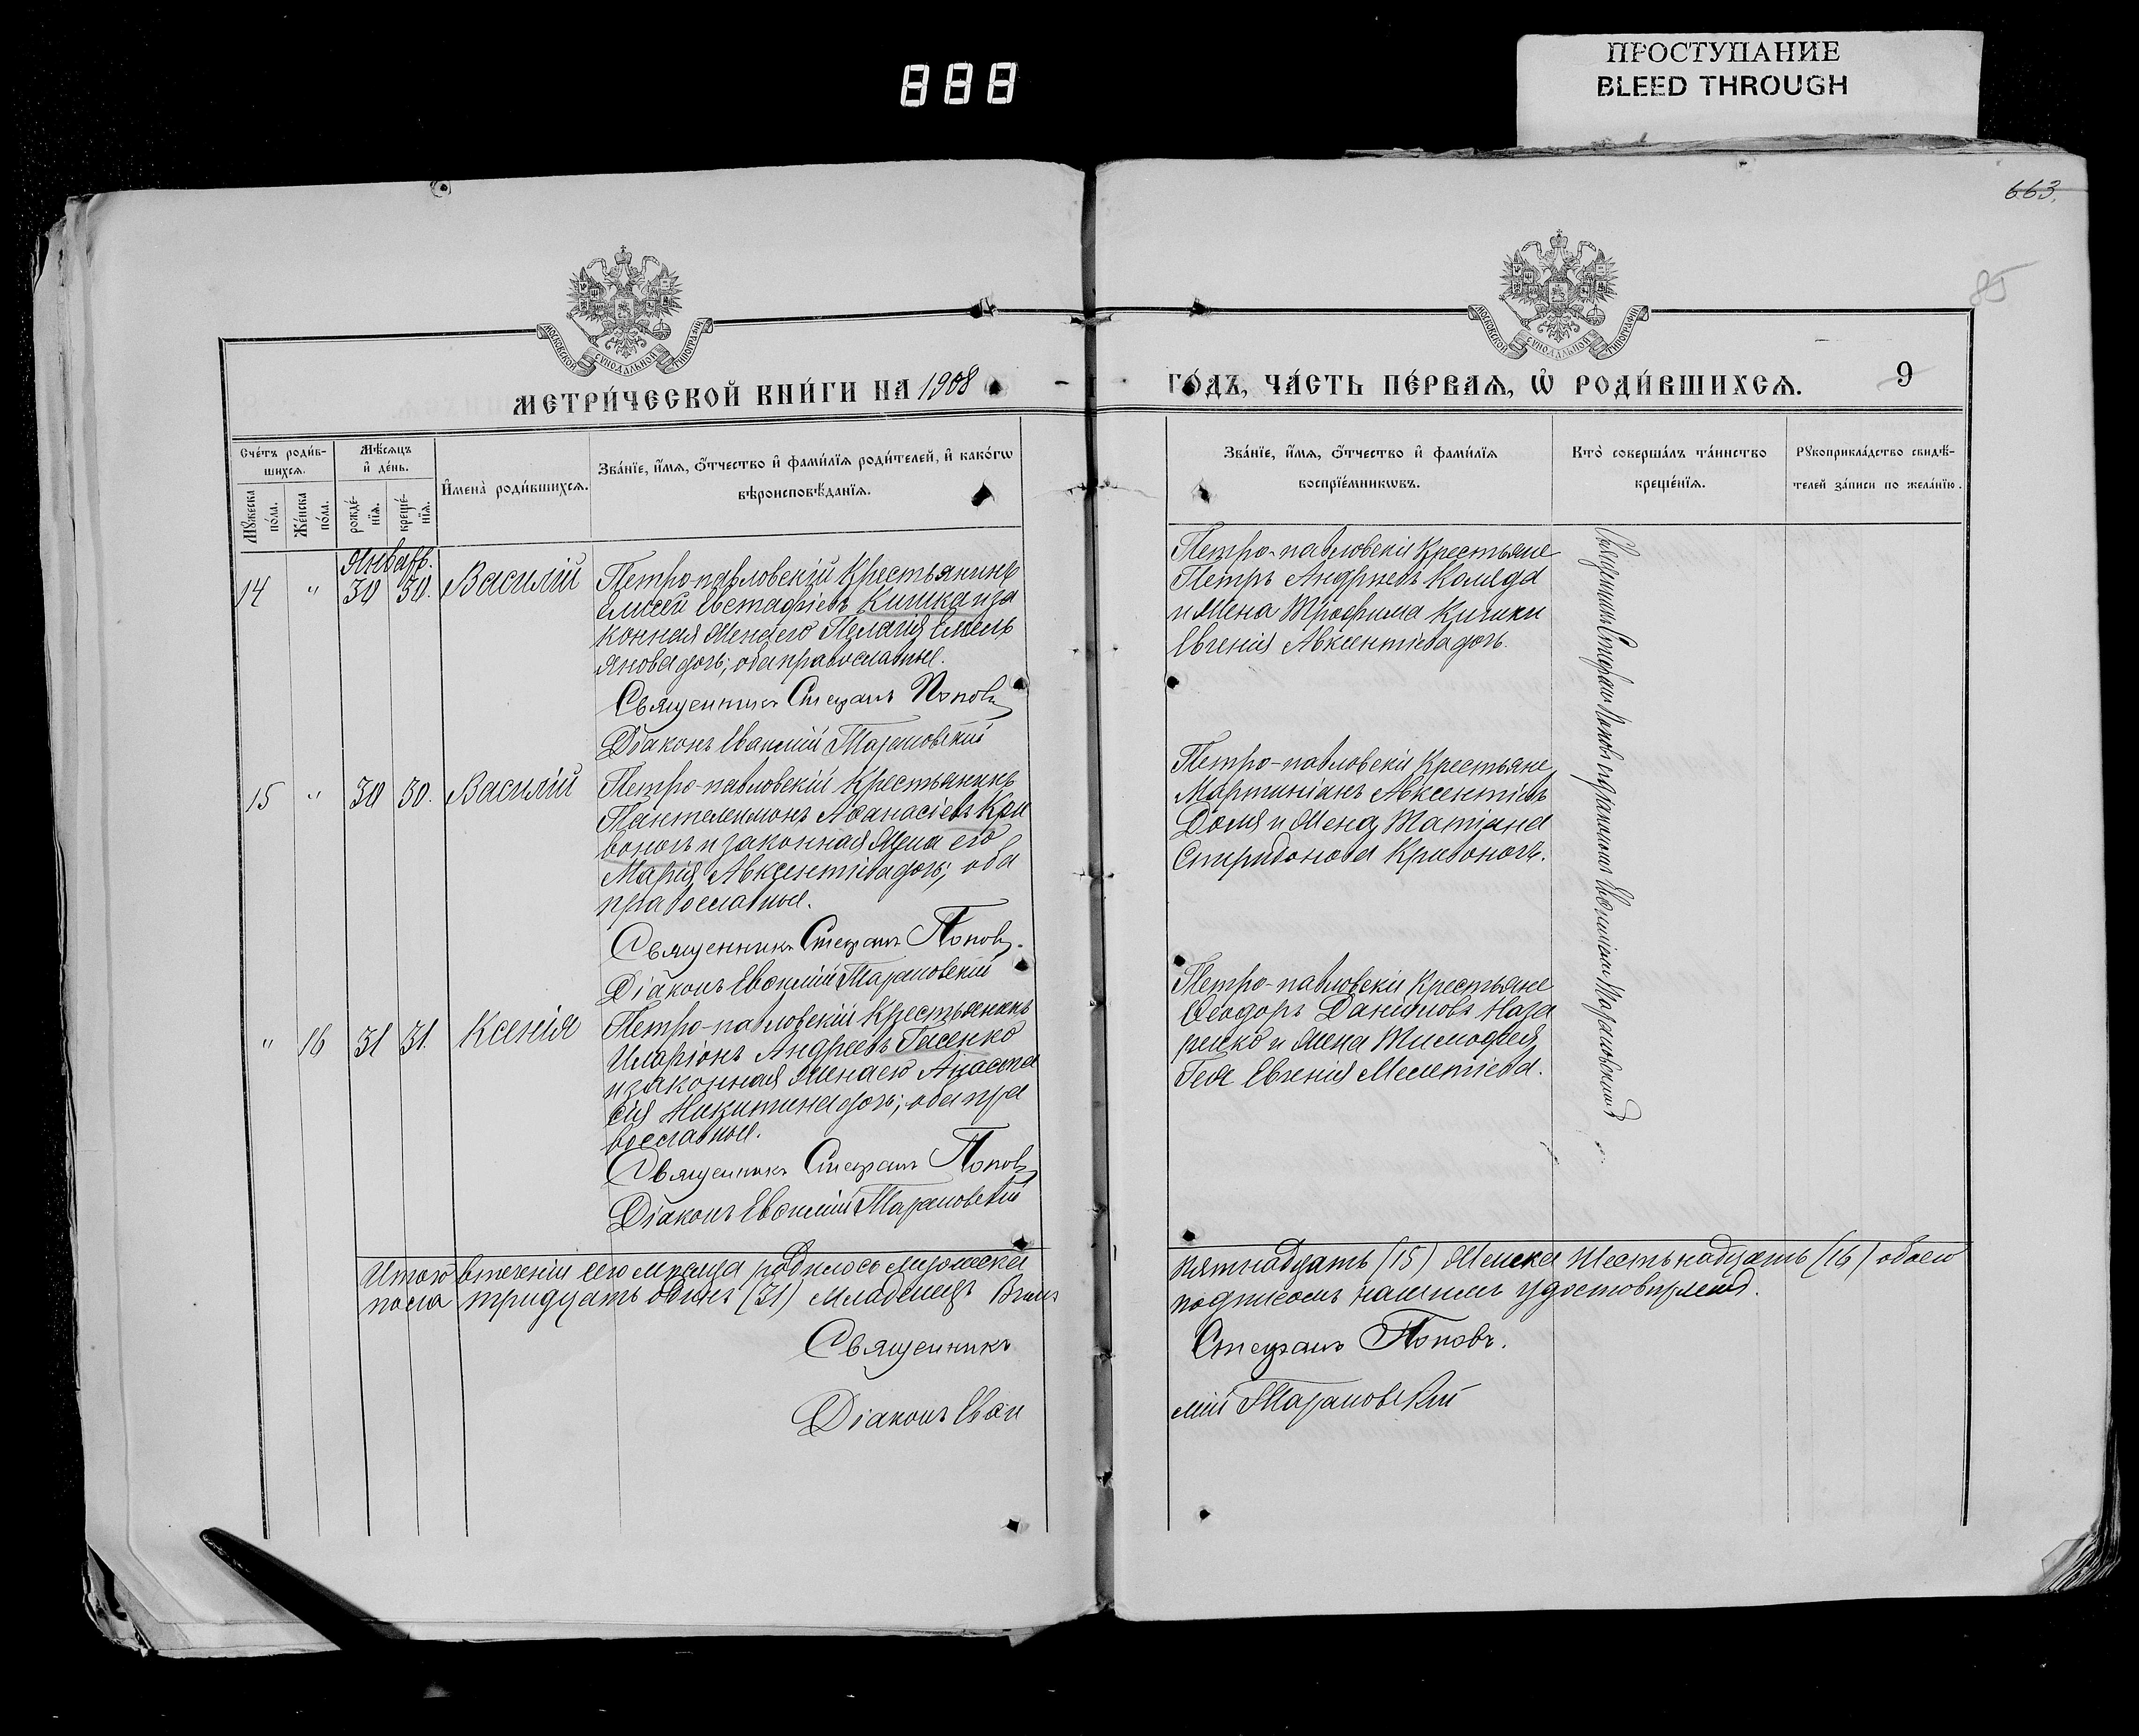 888
ПРОСТУПАНИЕ
BLEED THROUGH
663.
85
МОСКОВСКОЙ СУНОДАЛЬНОЙ ТИПОГРАФІИ
МОСКОВСКОЙ СУНОДАЛЬНОЙ ТИПОГРАФІИ
МЕТРИ́ЧЕСКОЙ КНИ́ГИ НА 1908
ГО́ДЪ, ЧА́СТЬ ПЕ́РВАѦ, Ѡ҆ РОДИ́ВШИХСѦ. 9
Сче́тъ роди́в-
шихсѧ.
Мѣ́сѧцъ
и҆ де́нь.
Мꙋ́жеска по́ла.
Же́нска по́ла.
рожде́-
нїѧ.
креще́-
нїѧ.
И҆мена̀ роди́вшихсѧ.
Зва́нїе, и҆́мѧ, ѻ҆́тчество и҆ фами́лїѧ роди́телей, и҆ како́гѡ
вѣроисповѣ́данїѧ.
Зва́нїе, и҆́мѧ, ѻ҆́тчество и҆ фами́лїѧ
воспрїе́мникѡвъ.
Кто̀ соверша́лъ та́инство
креще́нїѧ.
Рꙋкоприкла́дство свидѣ́-
телей за́писи по жела́нїю.
Январь.
14 " 30 30. Василій
Петро-павловскій Крестьянинъ
Елисей Евстафіевъ Кишка и за
конная жена его Пелагія Емель
янова дочь; оба православные.
Священникъ Стефанъ Поповъ
Діаконъ Евѳимій Тарановскій
Петро-павловскіи Крестьяне
Петръ Андреевъ
и жена Трофима Кишки
Евгенія Авксентіева дочь.
Священникъ Стефанъ Поповъ съ діакономъ Евѳиміемъ Тарановскимъ
15 " 30 30. Василій
Петро-павловскій Крестьянинъ
Пантелеимонъ Аѳанасіевъ Кри
воногъ и законная жена его
Марія Авксентіева дочь; оба
православные.
Священникъ Стефанъ Поповъ.
Діаконъ Евѳимій Тарановскій
Петро-павловскіи Крестьяне
Мартиніанъ Авксентіевъ
Доля и жена Татіана
Спиридонова Кривоногъ.
" 16 31 31. Ксенія
Петро-павловскій Крестьянинъ
Иларіонъ Андреевъ Гасенко
и законная жена его Анаста
сія Никитина дочь; оба пра
вославные.
Священникъ Стефанъ Поповъ
Діаконъ Евѳимій Тарановскій
Петро-павловскіи Крестьяне
Ѳеодоръ Даніиловъ Наза
ренко и жена Тимоѳея
Евгенія Мелетіева.
Итого втеченіи сего мѣсяца родилось мужеска
пятнадцать (15) Женска Шестьнадцать (16) обоего
пола тридцать одинъ (31) младенецъ
подписомъ нашимъ удостовѣряемъ.
Священникъ Стефанъ Поповъ.
Діаконъ Евѳи
мій Тарановскій